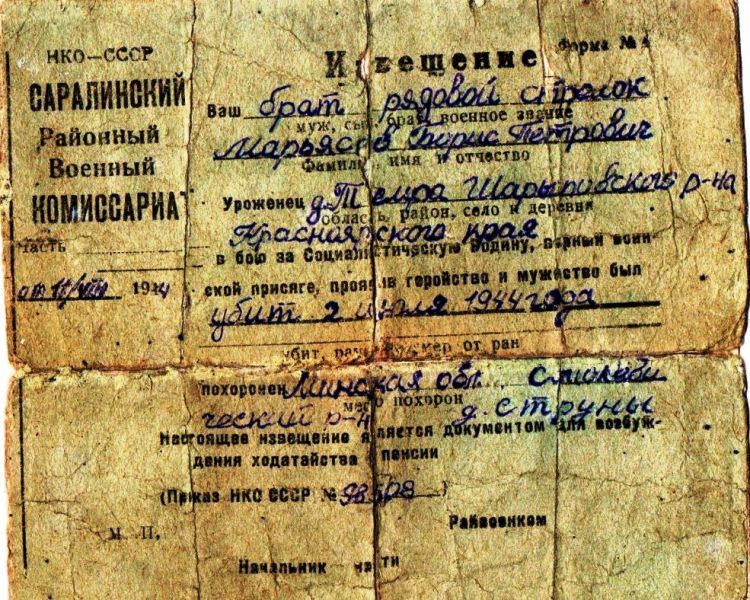 НКО—СССР
САРАЛИНСКИЙ
Районный
Военный
КОМИССАРИАТ
часть
от 18/VIII 1944
Форма № 4
Извещение
Ваш брат рядовой стрелок
муж, сын, брат, военное звание
Марьясов Борис Петрович
Фамилия, имя и отчество
Уроженец д. Темра Шарыповского р-на
область, район, село и деревня
Красноярского края
в бою за Социалистическую Родину, верный воин-
ской присяге, проявив геройство и мужество был
убит 2 июля 1944 года
убит, ранен, умер от ран
похоронен Минская обл., Смолеви
место похорон
ческий р-н д. Струны
Настоящее извещение является документом для возбуж-
дения ходатайства о пенсии
(Приказ НКО СССР № )
Райвоенком
М. П.
Начальник части